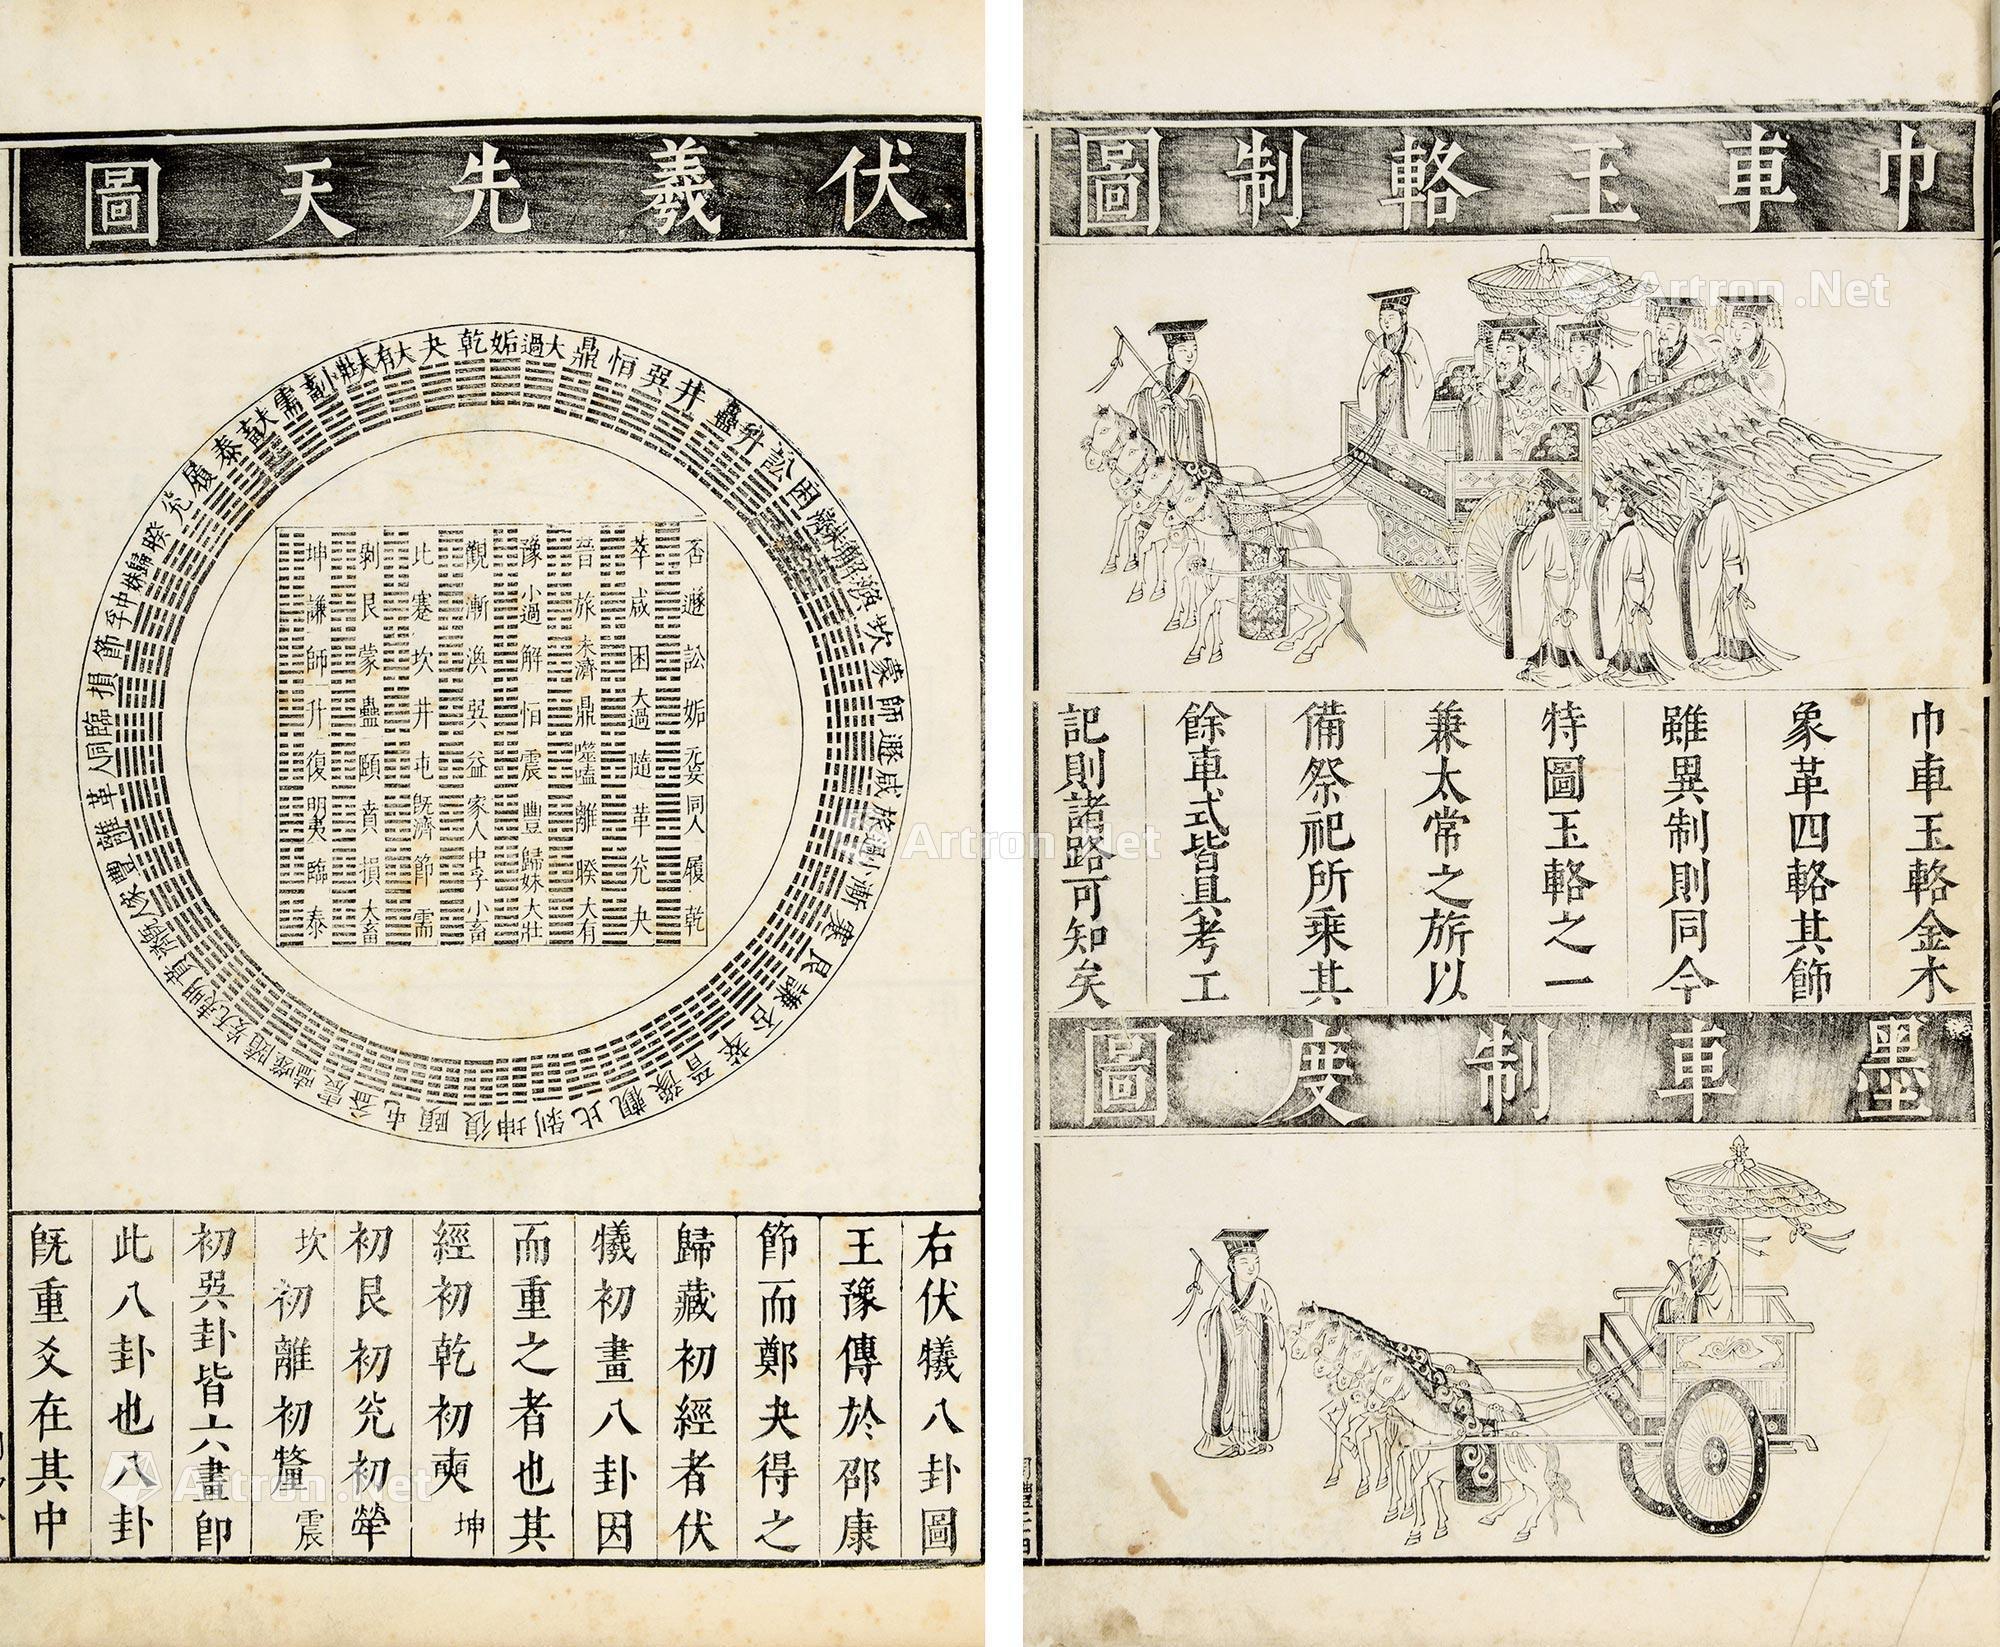 伏羲先天圖
乾
姤
大過
鼎
恒
巽
井
蠱
升
訟
困
未濟
解
渙
坎
蒙
師
遯
咸
旅
小過
漸
蹇
艮
謙
否
萃
晋
豫
觀
比
剝
坤
復
頤
屯
益
震
噬嗑
隨
无妄
明夷
賁
既濟
家人
豐
離
革
同人
臨
損
節
中孚
歸妹
睽
兌
履
泰
大畜
需
小畜
大壯
大有
夬
否遯訟姤无妄同人履乾
萃咸困大過隨革兌夬
晋旅未濟鼎噬嗑離睽大有
豫小過解恒震豐歸妹大壯
觀漸渙巽益家人中孚小畜
比蹇坎井屯既濟節需
剝艮蒙蠱頤賁損大畜
坤謙師升復明夷臨泰
右伏犧八卦圖
王豫傳於邵康
節而鄭夬得之
歸藏初經者伏
犧初畫八卦因
而重之者也其
經初乾初奭坤
初艮初兌初犖
坎初離初釐震
初巽卦皆六畫卽
此八卦也八卦
既重爻在其中
巾車玉輅制圖
巾車玉輅金木
象革四輅其飾
雖異制則同今
特圖玉輅之一
兼太常之旂以
備祭祀所乘其
餘車式皆具考工
記則諸路可知矣
墨車制度圖
Artron.Net
Artron.Net
Artron.Net
Artron.Net